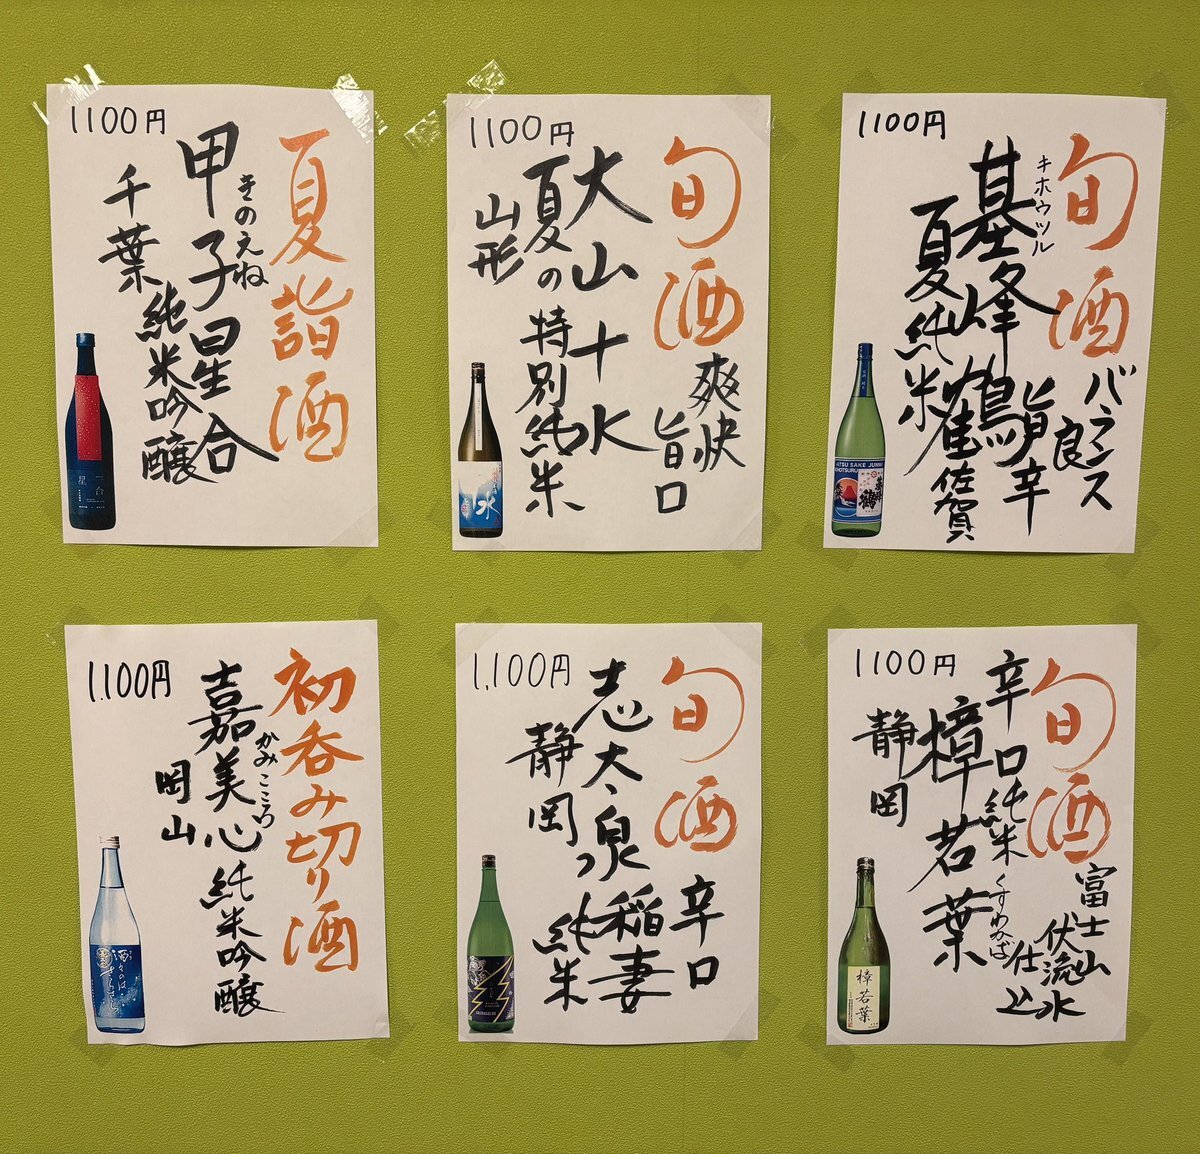 1100円
夏詣酒
きのえね
甲子星合
純米吟醸
千葉
星合
1100円
旬酒
爽快
旨口
大山十水
夏の特別純米
山形
水
1100円
旬酒
バランス
良
旨辛
キホウツル
基峰鶴
夏純米
佐賀
鶴
1.100円
初呑み切り酒
かみこころ
嘉美心
純米吟醸
岡山
1,100円
旬酒
辛口
志太泉
稲妻
純米
静岡
1100円
旬酒
富士山
伏流水
仕込
辛口純米
くすわかば
樟若葉
静岡
樟若葉